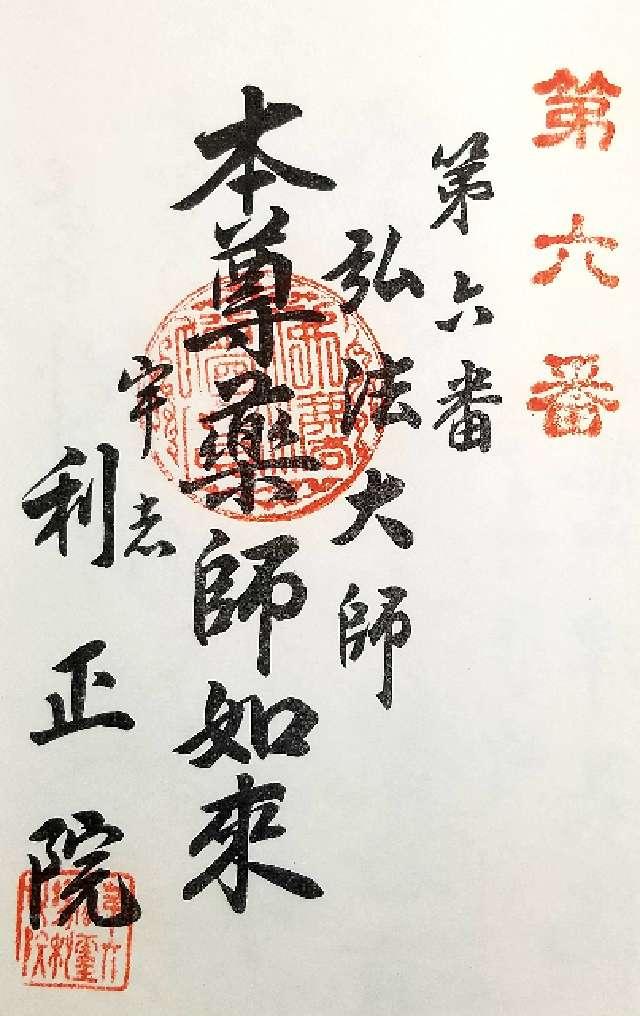 第六番
第六番
弘法大師
本尊薬師如來
宇志
利正院